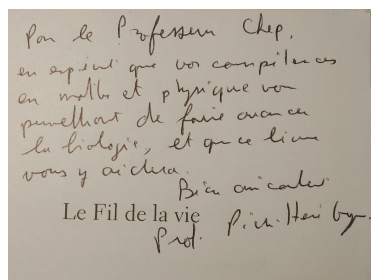 Pour le Professeur Chep,
en espérant que vos compétences
en maths et physique vous
permettront de faire avancer
la biologie, et que ce livre
vous y aidera.
Bien amicalement
Le Fil de la vie
Prof.